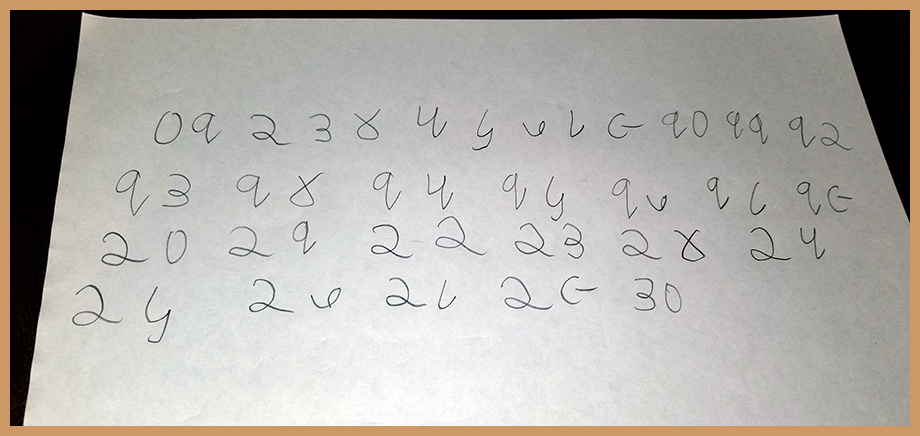 ૦૧ ૨ ૩ ૪ ૫ ૬ ૭ ૮ ૯ ૧૦ ૧૧ ૧૨
૧૩ ૧૪ ૧૫ ૧૬ ૧૭ ૧૮ ૧૯
૨૦ ૨૧ ૨૨ ૨૩ ૨૪ ૨૫
૨૬ ૨૭ ૨૮ ૨૯ ૩૦